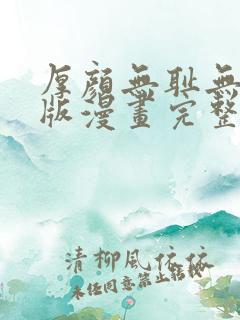 厚顏無恥無
版漫畫完整
清柳風依依
未任同意禁止轉載